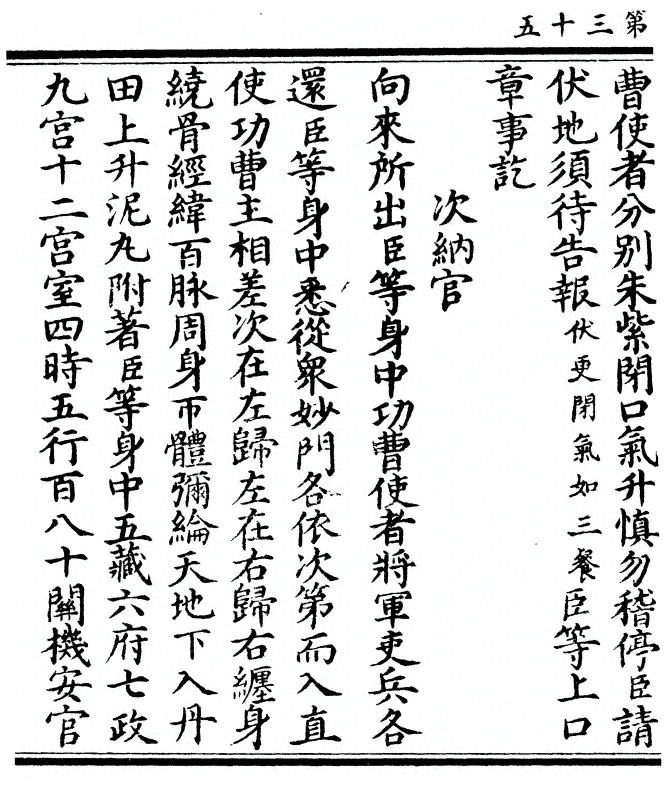 第三十五
曹使者分別朱紫閉口氣升慎勿稽停臣請
伏地須待告報伏更閉氣如三餐臣等上口
章事訖
次納官
向來所出臣等身中功曹使者將軍吏兵各
還臣等身中悉從眾妙門各依次第而入直
使功曹主相差次在左歸左在右歸右纏身
繞骨經緯百脉周身帀體彌綸天地下入丹
田上升泥丸附著臣等身中五藏六府七政
九宮十二宮室四時五行百八十關機安官